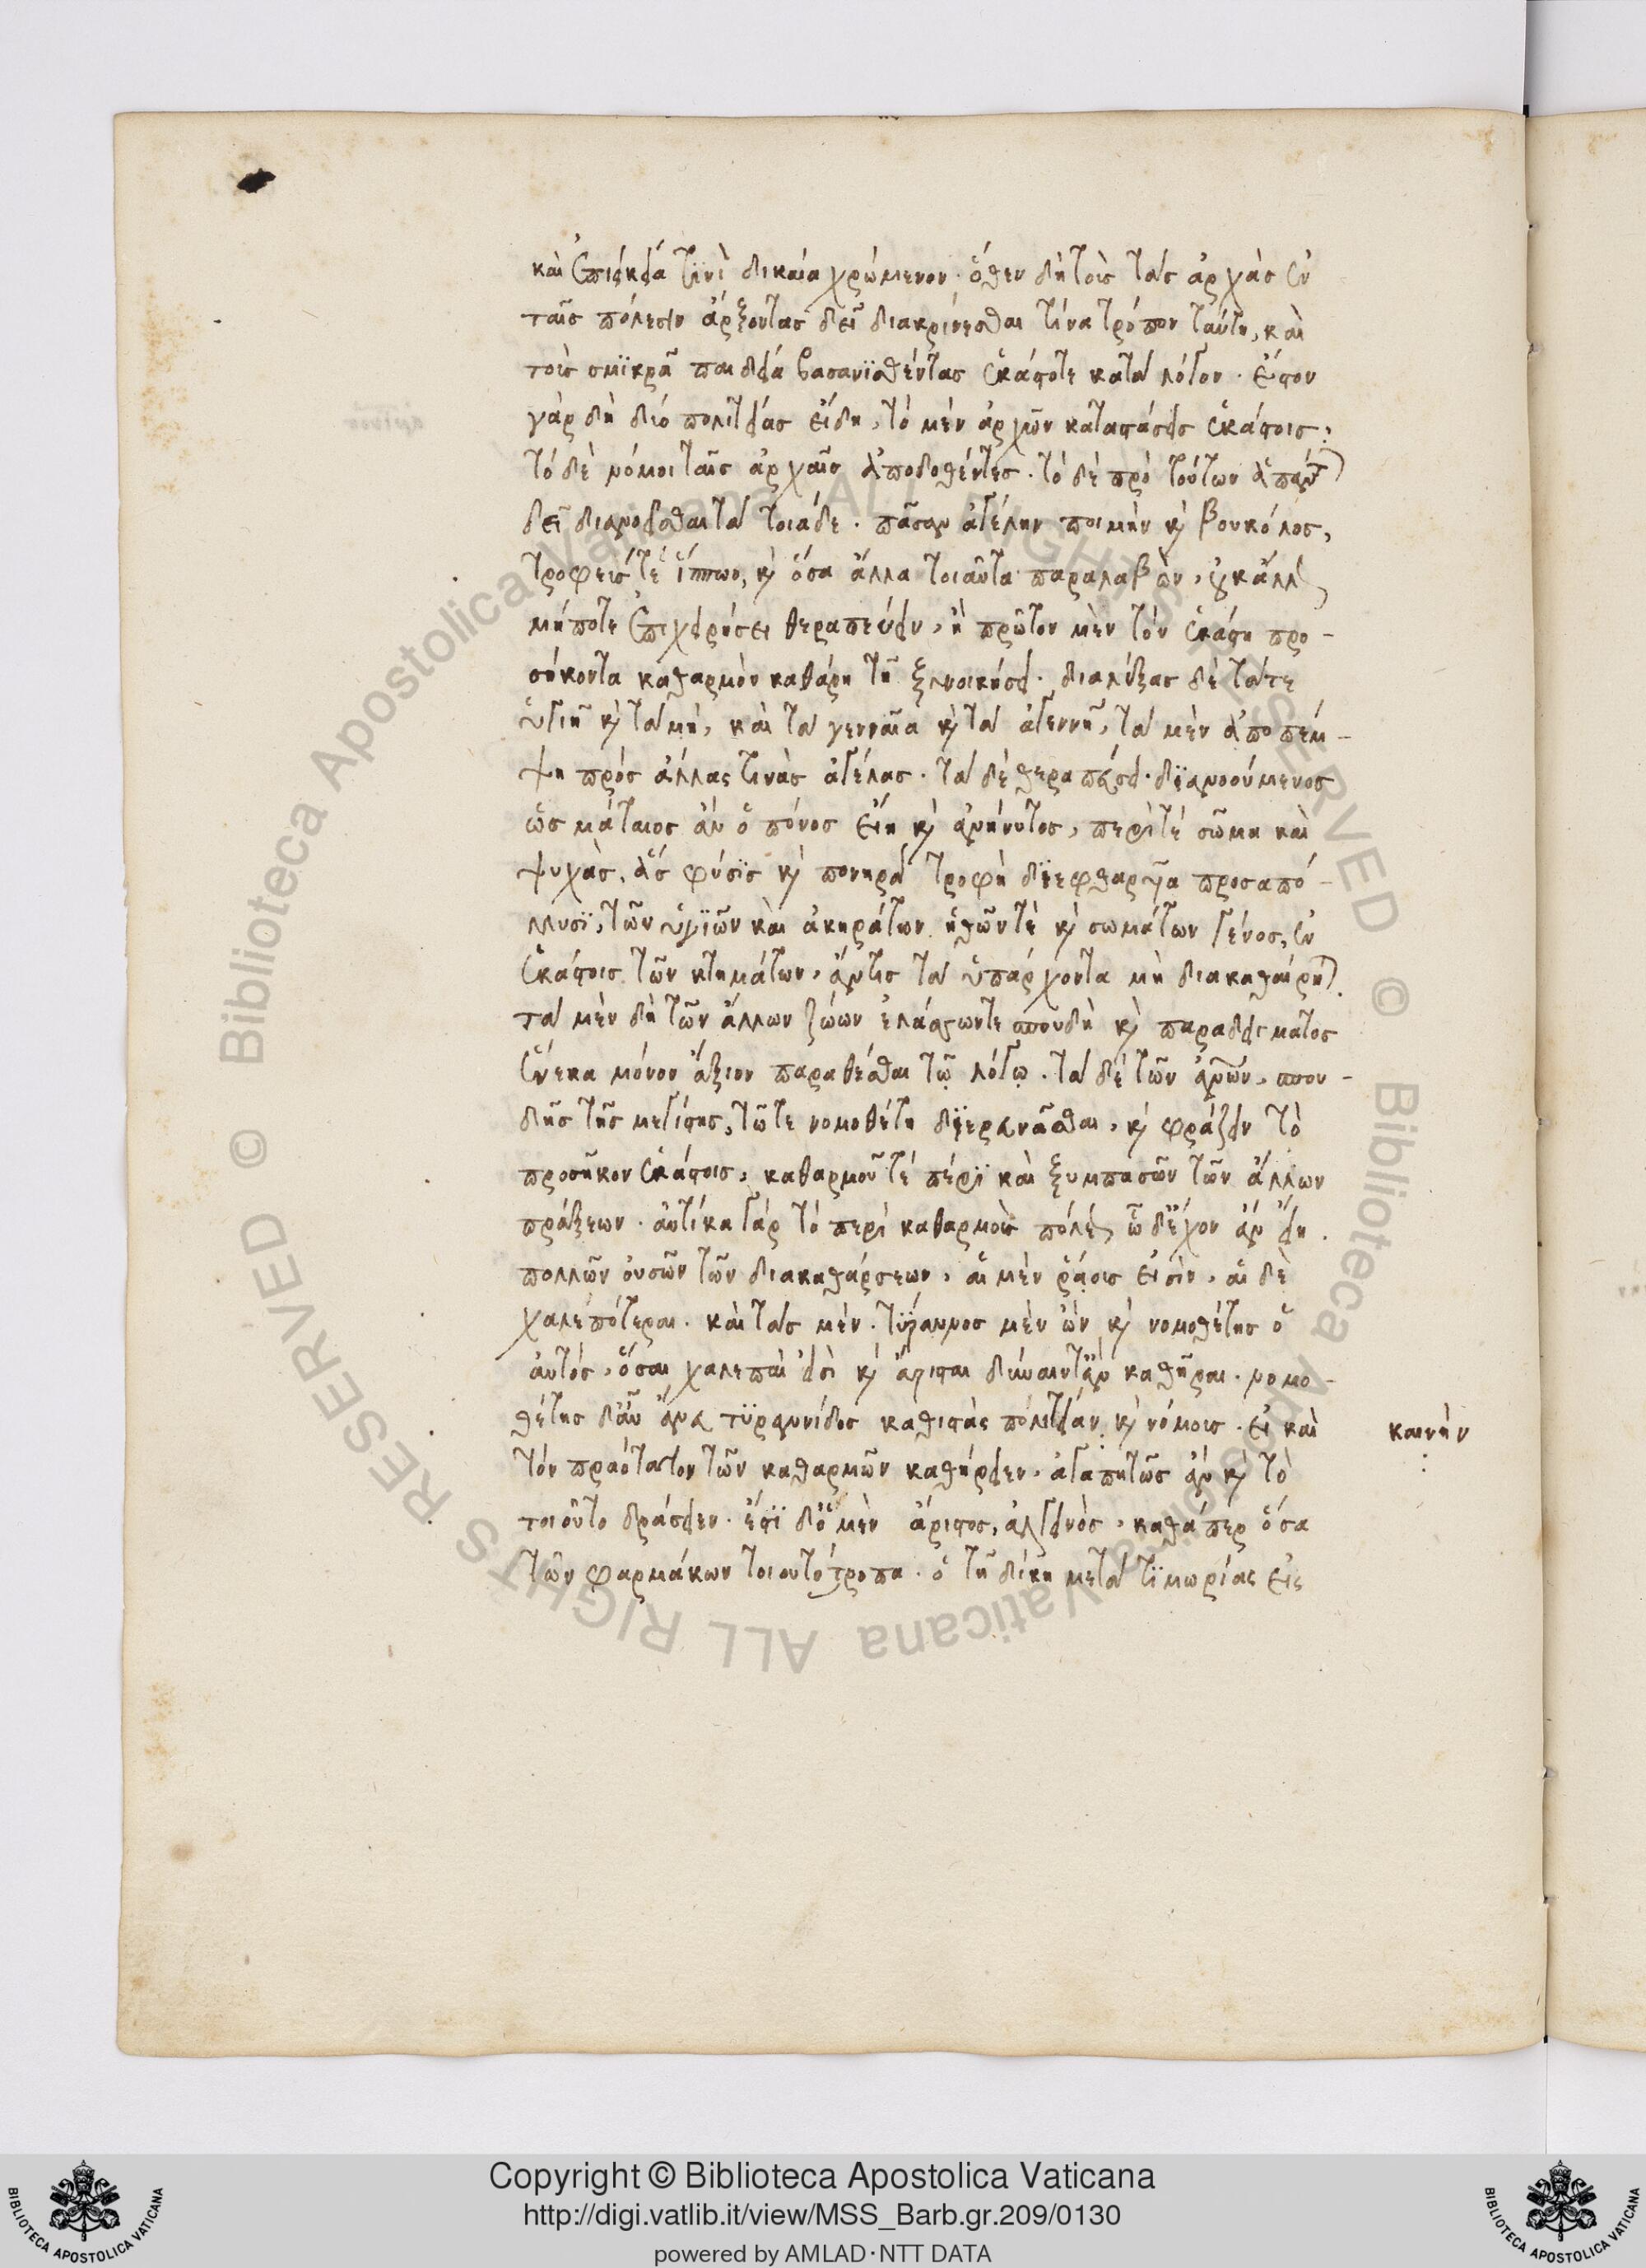 καὶ ἐπιεικείᾳ τϊνὶ δικαία χρώμενον· ὅθεν δὴ τοὺς τὰς ἀρχὰς ἐν
ταῖς πόλεσιν ἄρξοντας δεῖ διακρίνεσθαι τίνα τρόπον ταύτη, καὶ
τοὺς σμϊκρᾶ παιδεία βασανϊσθέντας ἑκάστοτε κατὰ λόγον. ἔστον
γὰρ δὴ δύο πολιτείας εἴδη, τὸ μὲν ἀρχῶν κατάστασεις ἑκάστοις·
τὸ δὲ νόμοι ταῖς ἀρχαῖς ἀποδοθέντες. τὸ δὲ πρὸ τούτων ἁπάντ(ων)
δεῖ διανοεῖσθαι τὰ τοιάδε. πᾶσαν ἀγέλην ποιμὴν κ(αὶ) βουκόλος,
τροφεύς τε ἵππων, κ(αὶ) ὅσα ἄλλα τοιαῦτα παραλαβὼν, οὐκ ἄλλ(ως)
μήποτε ἐπιχειρήσει θεραπεύειν, ἢ πρῶτον μὲν τὸν ἑκάστη προ-
σήκοντα καθαρμὸν καθάρη τῆ ξυνοικήσει. διαλέξας δὲ τά τε
ὑγιῆ κ(αὶ) τὰ μὴ, καὶ τὰ γενναῖα κ(αὶ) τὰ ἀγεννῆ, τὰ μὲν ἀποπέμ-
ψη πρὸς ἄλλας τινὰς ἀγέλας. τὰ δὲ θεραπεύσει· δϊανοούμενος
ὡς μάταιος ἂν ὁ πόνος εἴη κ(αὶ) ἀνήνυτος, περί τε σῶμα καὶ
ψυχὰς, ἃς φύσϊς κ(αὶ) πονηρὰ τροφὴ δϊεφθαρκυῖα προσαπό-
λλυσϊ, τῶν ὑγϊῶν καὶ ἀκηράτων ἠθῶν τὲ κ(αὶ) σωμάτων γένος, ἐν
ἑκάστοις τῶν κτημάτων, ἄν τις τὰ ὑπάρχοντα μὴ διακαθαίρη(ται).
τὰ μὲν δὴ τῶν ἄλλων ζώων ἐλάσσω τε σπουδὴ κ(αὶ) παραδείγματος
ἕνεκα μόνον ἄξιον παραθέσθαι τῷ λόγῳ. τὰ δὲ τῶν ἀν(θρώπ)ων, σπου-
δῆς τῆς μεγίστης, τῶ τε νομοθέτη δϊερευνᾶσθαι, κ(αὶ) φράζειν τὸ
προσῆκον ἑκάστοις, καθαρμοῦ τὲ πέρϊ καὶ ξυμπασῶν τῶν ἄλλων
πράξεων. αὐτίκα γὰρ τὸ περὶ καθαρμοὺς πόλεως ὧδ' ἔχον ἂν εἴη.
πολλῶν οὐσῶν τῶν διακαθάρσεων, αἱ μὲν ῥάους εἰσὶν, αἱ δὲ
χαλεπώτεραι. καὶ τὰς μὲν. τύραννος μὲν ὢν κ(αὶ) νομοθέτης ὁ
αὐτός, ὅσαι χαλεπαὶ εἰσὶ κ(αὶ) ἄρισται δύναιντ' ἂν καθῆραι. νομο-
θέτης δ' ἄν ἄνευ τϋραννίδος καθιστὰς πολιτείαν κ(αὶ) νόμους. εἰ καὶ
καινὴν
τὸν πραότατον τῶν καθαρμῶν καθήρειεν, ἀγαπητῶς ἂν κ(αὶ) τὸ
τοιοῦτο δράσειεν. ἔστϊ δ' ὁ μὲν ἄριστος, ἀλγεινὸς, καθάπερ ὅσα
τῶν φαρμάκων τοιουτότροπα. ὁ τῆ δίκη μετὰ τϊμωρίας εἰς
Copyright © Biblioteca Apostolica Vaticana
http://digi.vatlib.it/view/MSS_Barb.gr.209/0130
powered by AMLAD·NTT DATA
BIBLIOTECA APOSTOLICA VATICANA
BIBLIOTECA APOSTOLICA VATICANA
© Biblioteca Apostolica Vaticana ALL RIGHTS RESERVED © Biblioteca Apostolica Vaticana ALL RIGHTS RESERVED